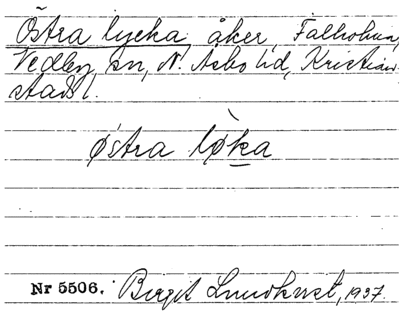 Östra lycka, åker, Falhohus,
Vedby sn, N. Åsbo hd, Kristian-
stads l.
østra lø̀ka
Nr 5506. Birgit Lundkvist, 1937.